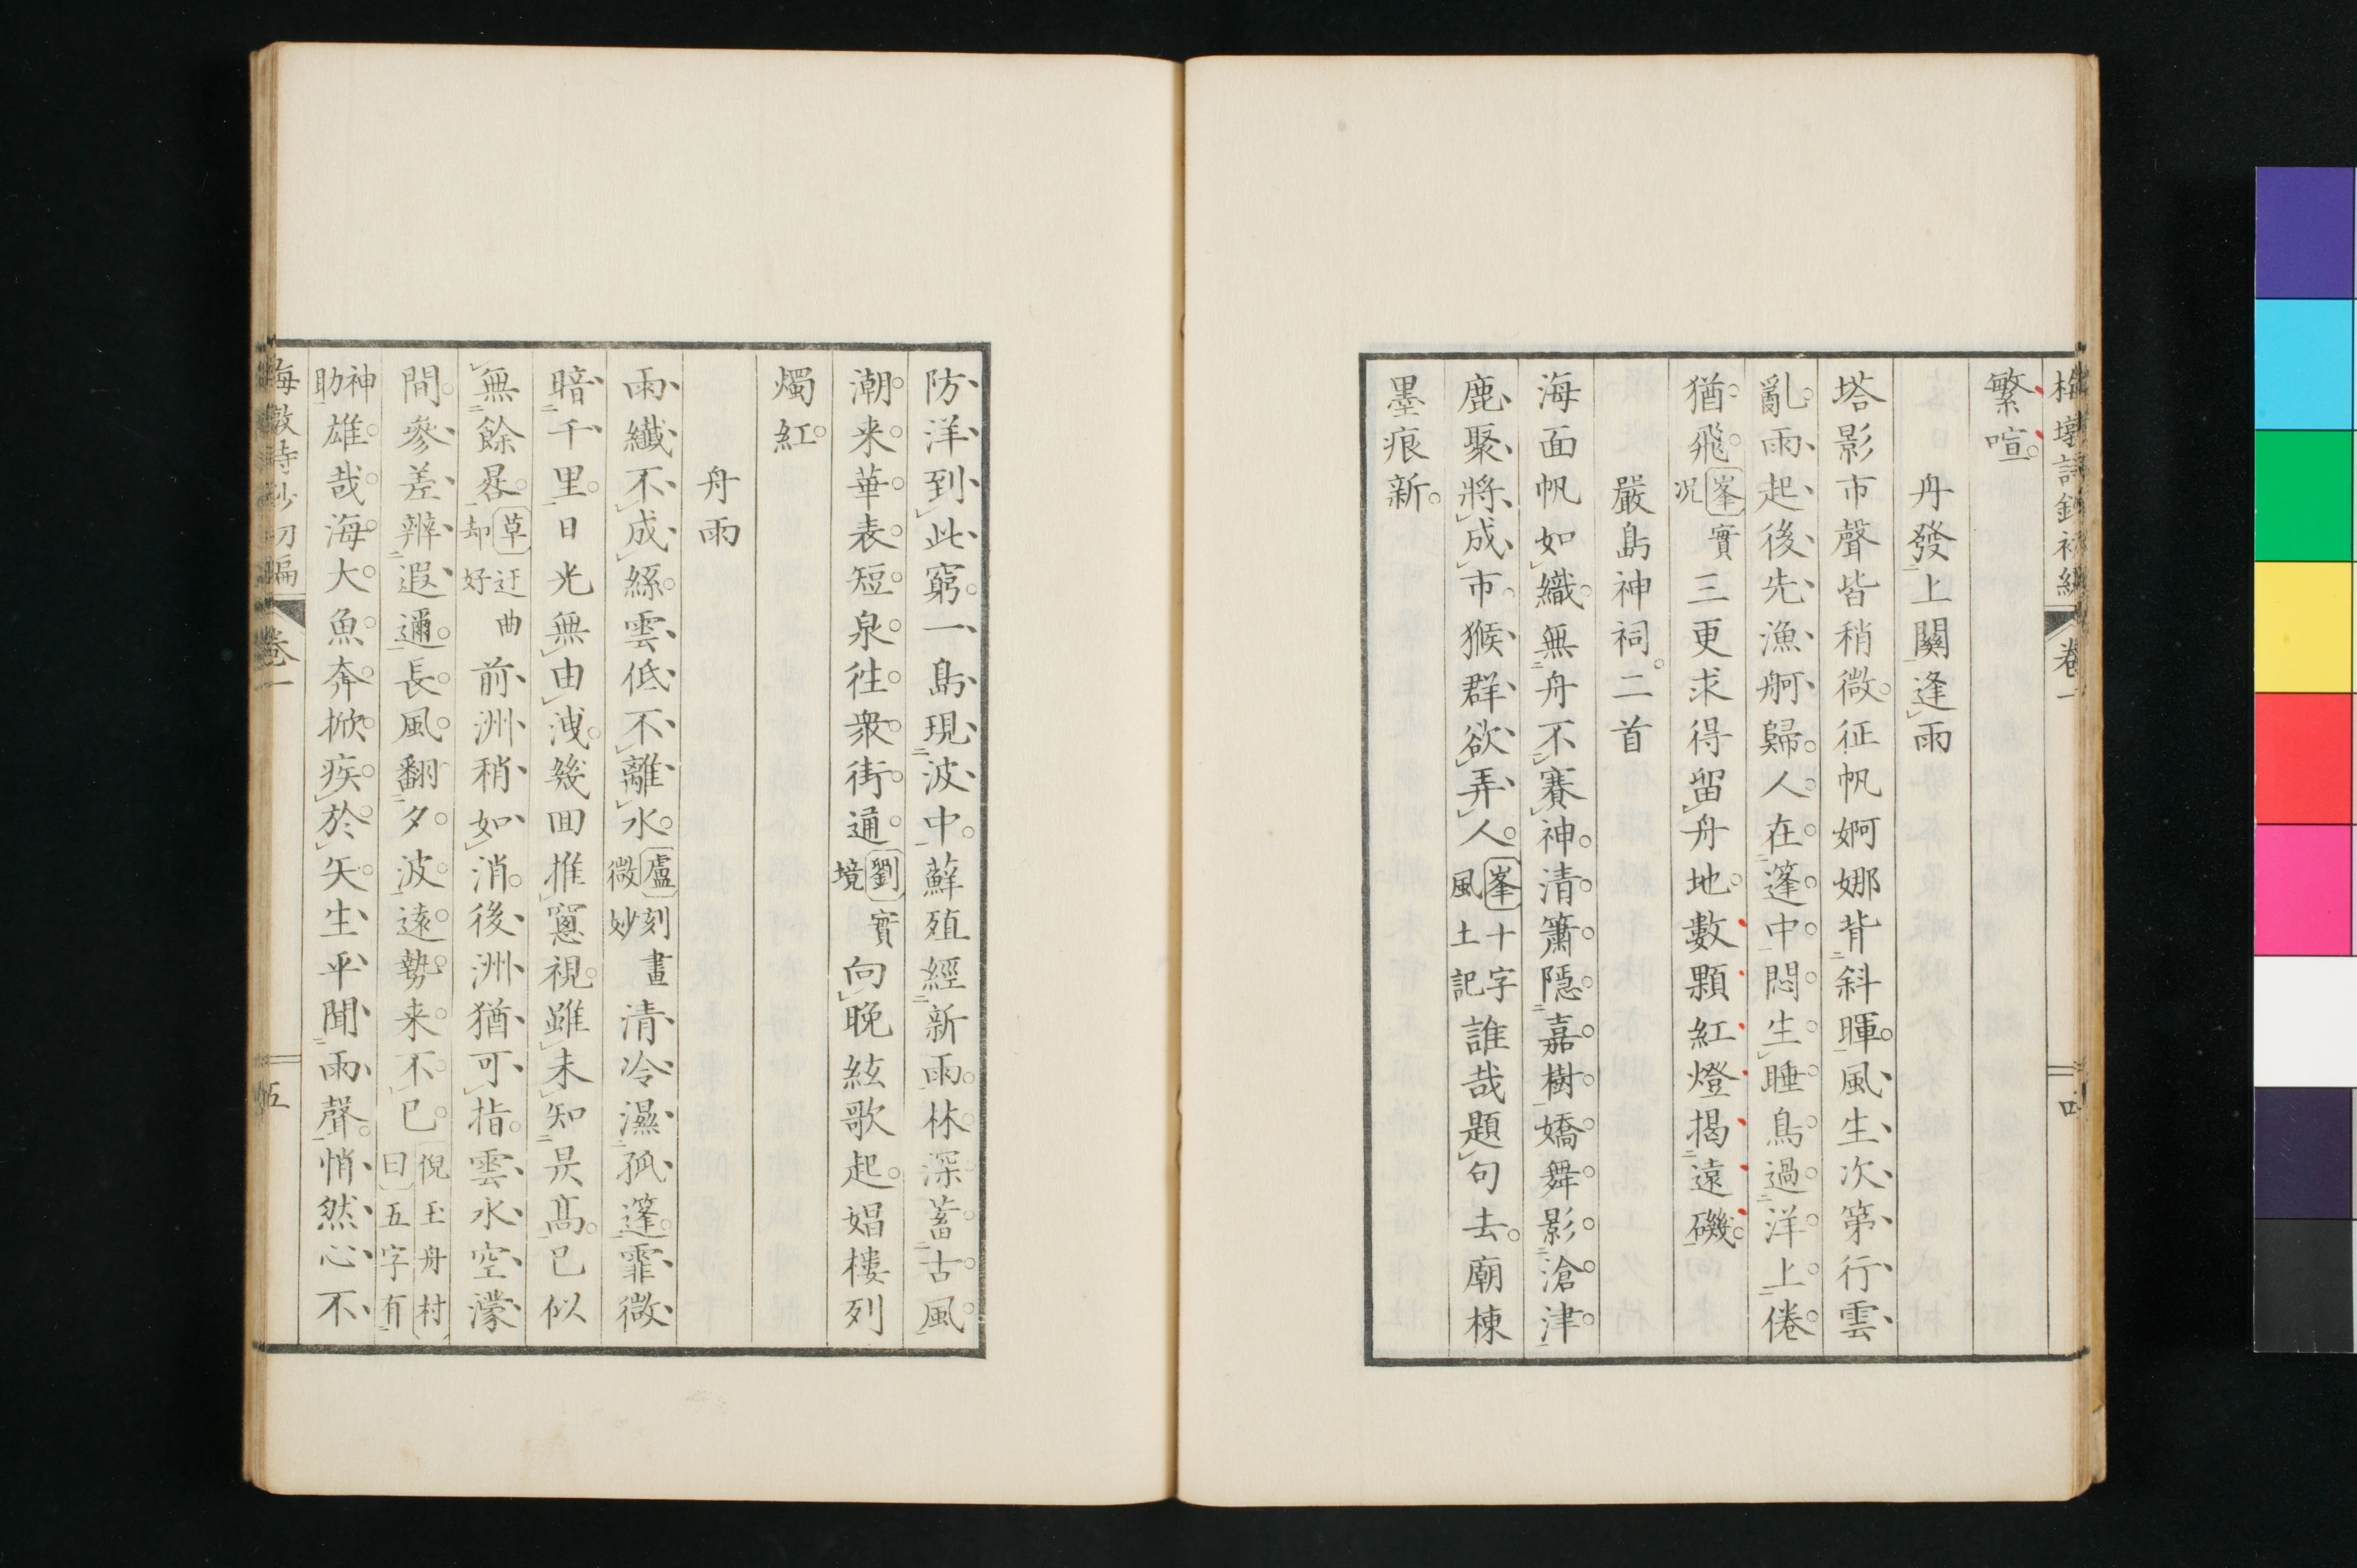 梅墩詩鈔初編 卷一 四
繁喧
舟發上關逢雨
塔影市聲皆稍微征帆婀娜背斜暉風生次第行雲
亂雨起後先漁舸歸人在篷中悶生睡鳥過洋上倦
猶飛峯實況三更求得留舟地數顆紅燈揭遠磯
嚴島神祠二首
海面帆如織無舟不賽神清簫隱嘉樹嬌舞影滄津
鹿聚將成市猴群欲弄人峯十字風土記誰哉題句去廟棟
墨痕新
防洋到此窮一島現波中蘚殖經新雨林深蓄古風
潮来華表短泉徃衆街通劉實境向晚絃歌起娼樓列
燭紅
舟雨
雨纖不成絲雲低不離水盧刻畫微妙清冷濕孤篷霏微
暗千里日光無由洩幾回推窻視雖未知昃髙已似
無餘晷草迂曲却好前洲稍如消後洲猶可指雲水空濛
間參差辨遐邇長風翻夕波遠勢来不已倪玉舟村曰五字有
神助雄哉海大魚奔掀疾於矢生平聞雨聲悄然心不
梅墩詩鈔初編 卷一 五